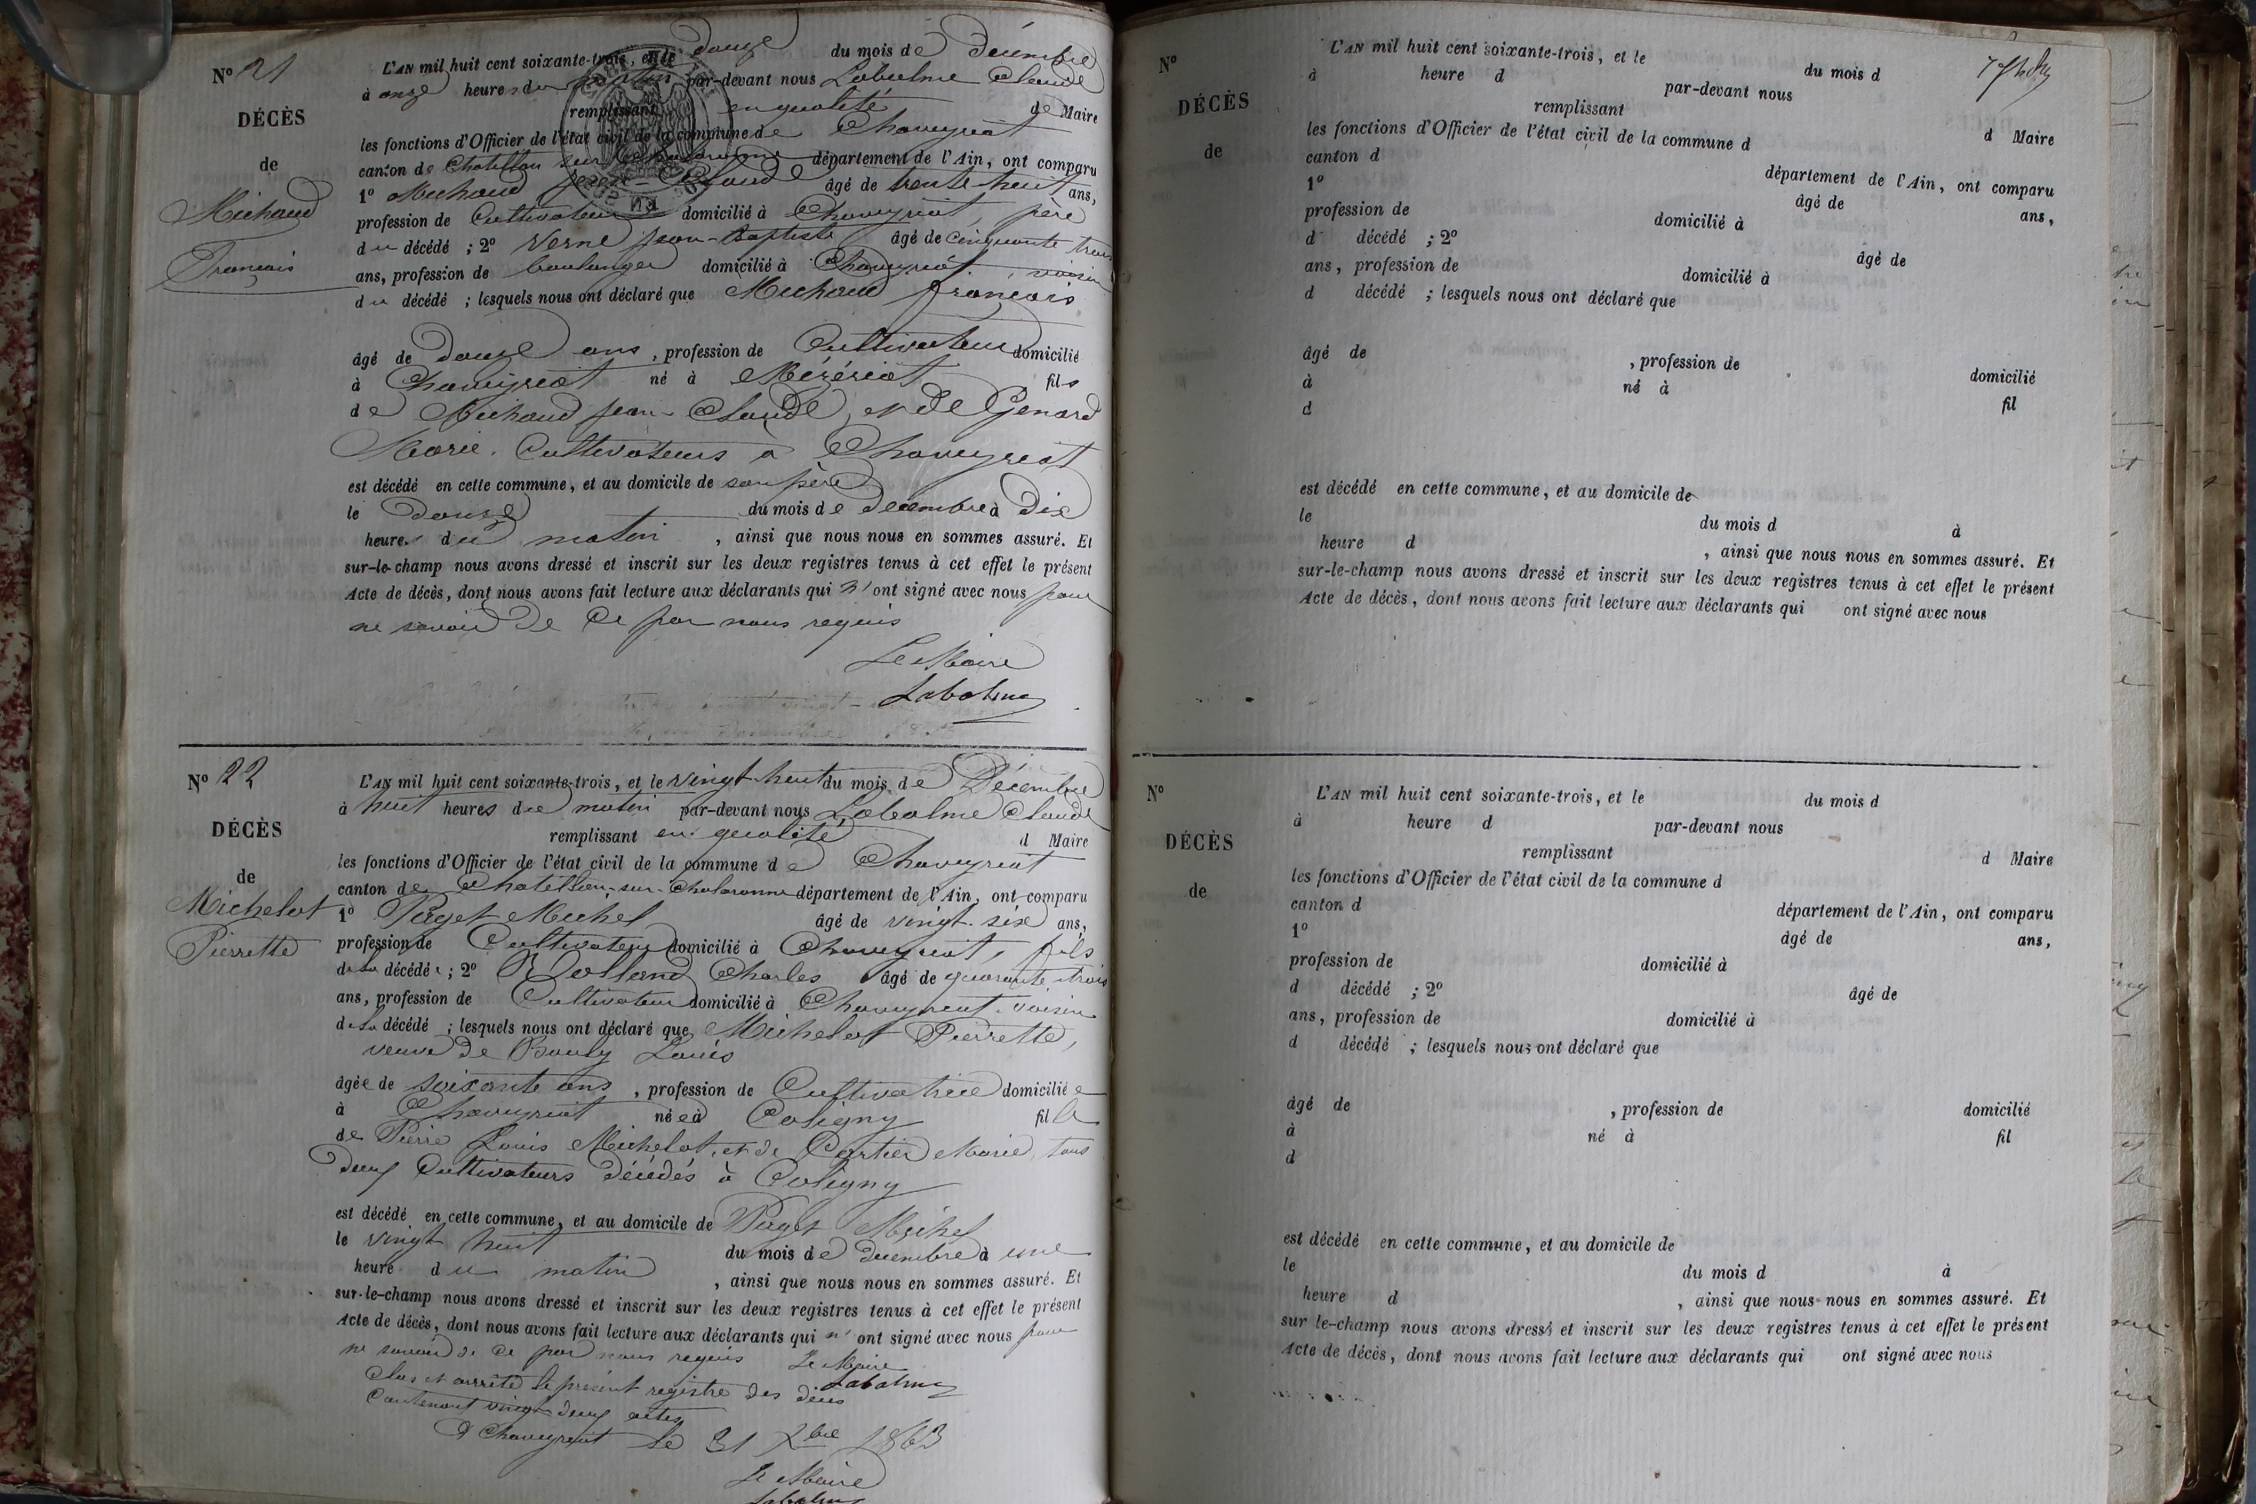 N° 21
DÉCÈS
de
Michaud
François
L'AN mil huit cent soixante-trois, et le douze du mois de Décembre
à onze heures du matin par-devant nous Labalme Claude
remplissant en qualité de Maire
les fonctions d'Officier de l'état civil de la commune de Chaveyriat
canton de Chatillon sur Chalaronne département de l'Ain, ont comparu
1° Michaud Jean-Claude âgé de trente-huit ans,
profession de Cultivateur domicilié à Chaveyriat, père
du décédé ; 2° Verne Jean-Baptiste âgé de cinquante trois
ans, profession de boulanger domicilié à Chaveyriat, voisin
du décédé ; lesquels nous ont déclaré que Michaud françois
âgé de douze ans, profession de Cultivateur domicilié
à Chaveyriat né à Mézériat fils
de Michaud Jean-Claude, et de Genard
Marie, Cultivateurs à Chaveyriat
est décédé en cette commune, et au domicile de son père
le Douze du mois de décembre à Dix
heures du matin, ainsi que nous nous en sommes assuré. Et
sur-le-champ nous avons dressé et inscrit sur les deux registres tenus à cet effet le présent
Acte de décès, dont nous avons fait lecture aux déclarants qui n'ont signé avec nous pour
ne savoir de ce par nous requis
Le Maire
Labalme
N° 22
DÉCÈS
de
Michelot
Pierrette
L'AN mil huit cent soixante-trois, et le vingt huit du mois de Décembre
à huit heures du matin par-devant nous Labalme Claude
remplissant en qualité d Maire
les fonctions d'Officier de l'état civil de la commune de Chaveyriat
canton de Chatillon-sur-Chalaronne département de l'Ain, ont comparu
1° Puget Michel âgé de vingt-six ans,
profession de Cultivateur domicilié à Chaveyriat, fils
de la décédée ; 2° Rolland Charles âgé de quarante trois
ans, profession de Cultivateur domicilié à Chaveyriat, voisin
de la décédé ; lesquels nous ont déclaré que Michelot Pierrette,
veuve de Bouly Louis
âgée de soixante ans, profession de Cultivatrice domiciliée
à Chaveyriat née à Coligny fille
de Pierre Louis Michelot, et de Cartier Marie, tous
deux Cultivateurs décédés à Coligny
est décédé en cette commune, et au domicile de Puget Michel
le vingt huit du mois de décembre à une
heure du matin, ainsi que nous nous en sommes assuré. Et
sur-le-champ nous avons dressé et inscrit sur les deux registres tenus à cet effet le présent
Acte de décès, dont nous avons fait lecture aux déclarants qui n'ont signé avec nous pour
ne savoir de ce par nous requis Le Maire
Labalme
Clos et arrêté le présent registre des décès
Contenant vingt-deux actes
A Chaveyriat le 31 Xbre 1863
Le Maire
Labalme
N°
DÉCÈS
de
L'AN mil huit cent soixante-trois, et le du mois d
à heure d par-devant nous
remplissant d Maire
les fonctions d'Officier de l'état civil de la commune d
canton d département de l'Ain, ont comparu
1° âgé de ans,
profession de domicilié à
d décédé ; 2° âgé de
ans, profession de domicilié à
d décédé ; lesquels nous ont déclaré que
âgé de , profession de domicilié
à né à fil
d
est décédé en cette commune, et au domicile de
le du mois d à
heure d , ainsi que nous nous en sommes assuré. Et
sur-le-champ nous avons dressé et inscrit sur les deux registres tenus à cet effet le présent
Acte de décès, dont nous avons fait lecture aux déclarants qui ont signé avec nous
N°
DÉCÈS
de
L'AN mil huit cent soixante-trois, et le du mois d
à heure d par-devant nous
remplissant d Maire
les fonctions d'Officier de l'état civil de la commune d
canton d département de l'Ain, ont comparu
1° âgé de ans,
profession de domicilié à
d décédé ; 2° âgé de
ans, profession de domicilié à
d décédé ; lesquels nous ont déclaré que
âgé de , profession de domicilié
à né à fil
d
est décédé en cette commune, et au domicile de
le du mois d à
heure d , ainsi que nous nous en sommes assuré. Et
sur le-champ nous avons dressé et inscrit sur les deux registres tenus à cet effet le présent
Acte de décès, dont nous avons fait lecture aux déclarants qui ont signé avec nous